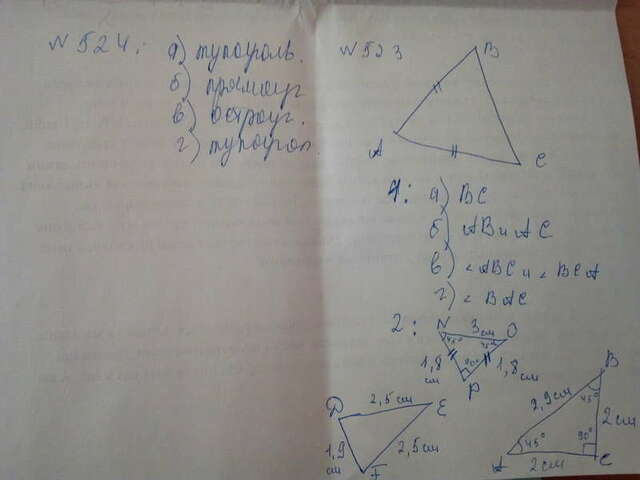 N 524: а) тупоуголь.
б) прямоуг
в) остроуг.
г) тупоугол.
N 523
B
A
C
1: а) BC
б) AB и AC
в) ∠ABC и ∠BCA
г) ∠BAC
2: N 3см O
45° 45°
1,8 см 90° 1,8 см
P
D 2,5 см E
1,9 см 2,5 см
F
B
2,9 см 45° 2 см
45° 90°
A 2 см C